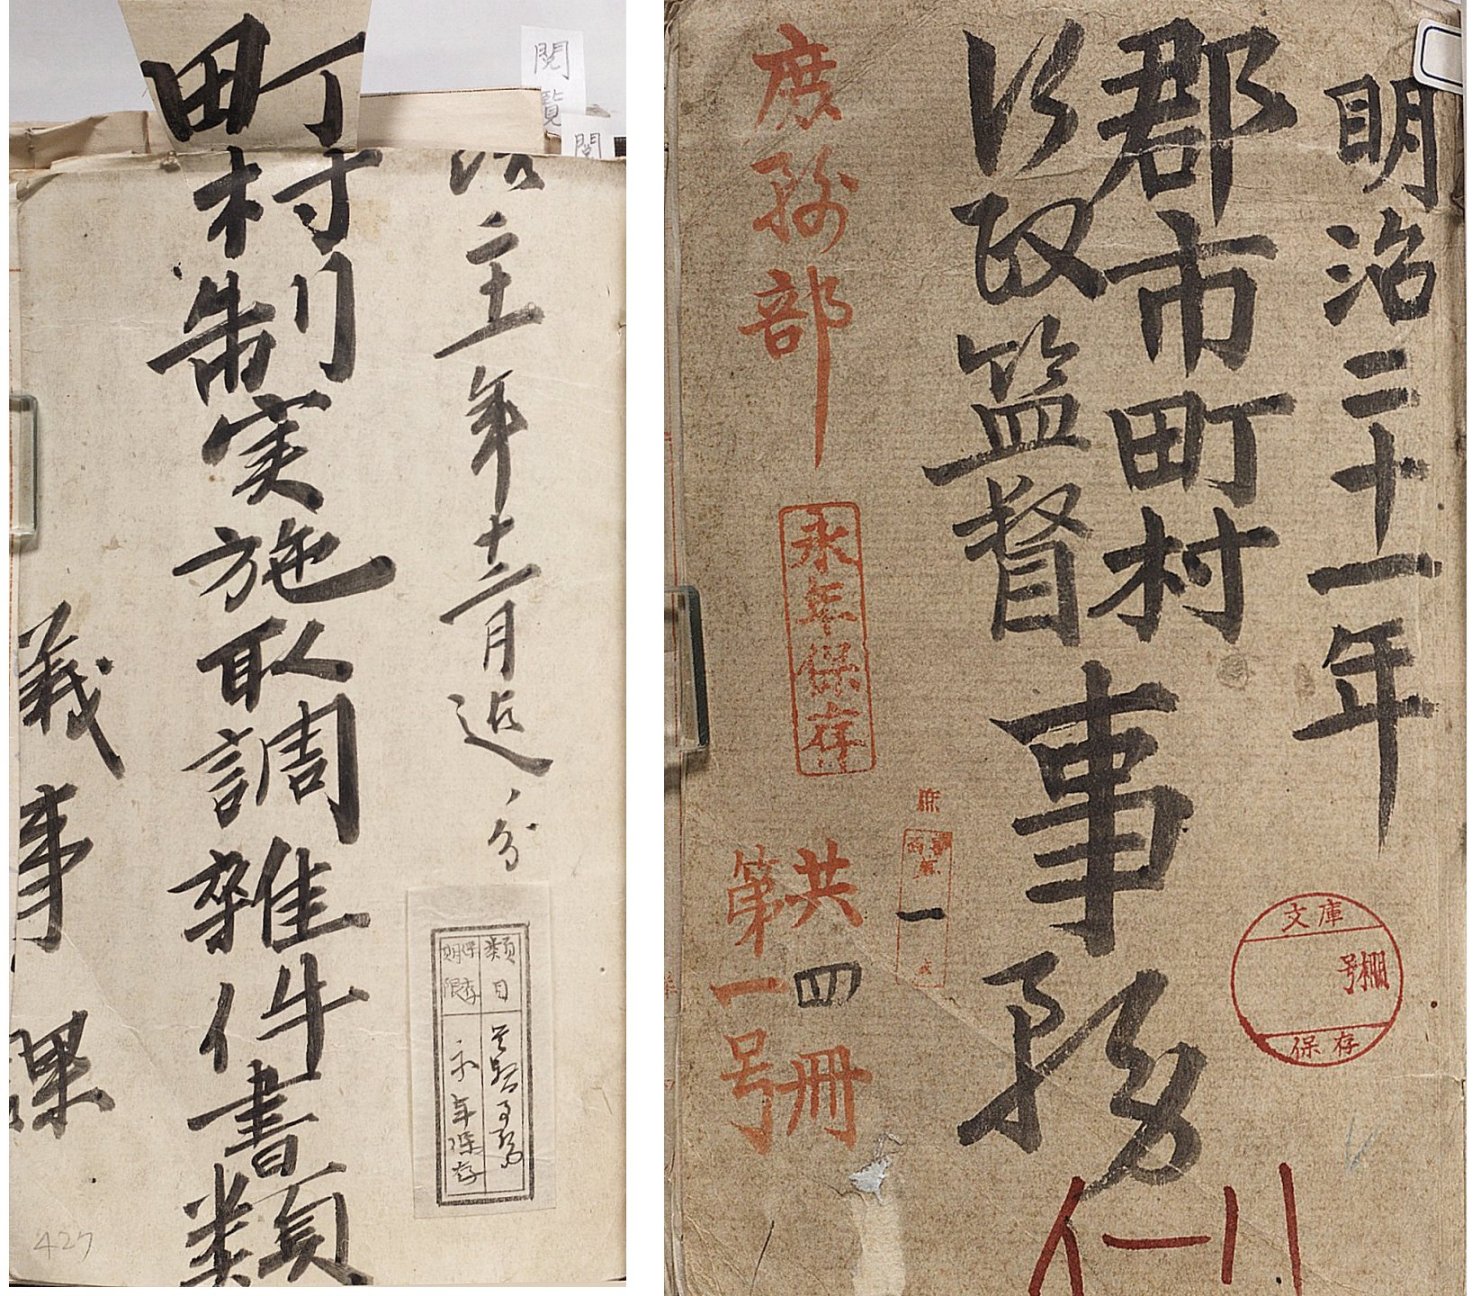 閲
覧
閲
治二十一年十二月迄ノ分
町村制実施取調雑件書類
義事課
類目
保存期限
永年保存
427
明治二十一年
郡市町村
行政監督
事務
庶務部
永年保存
共四冊
第一号
庶
一
文庫
号棚
保存
イ一11